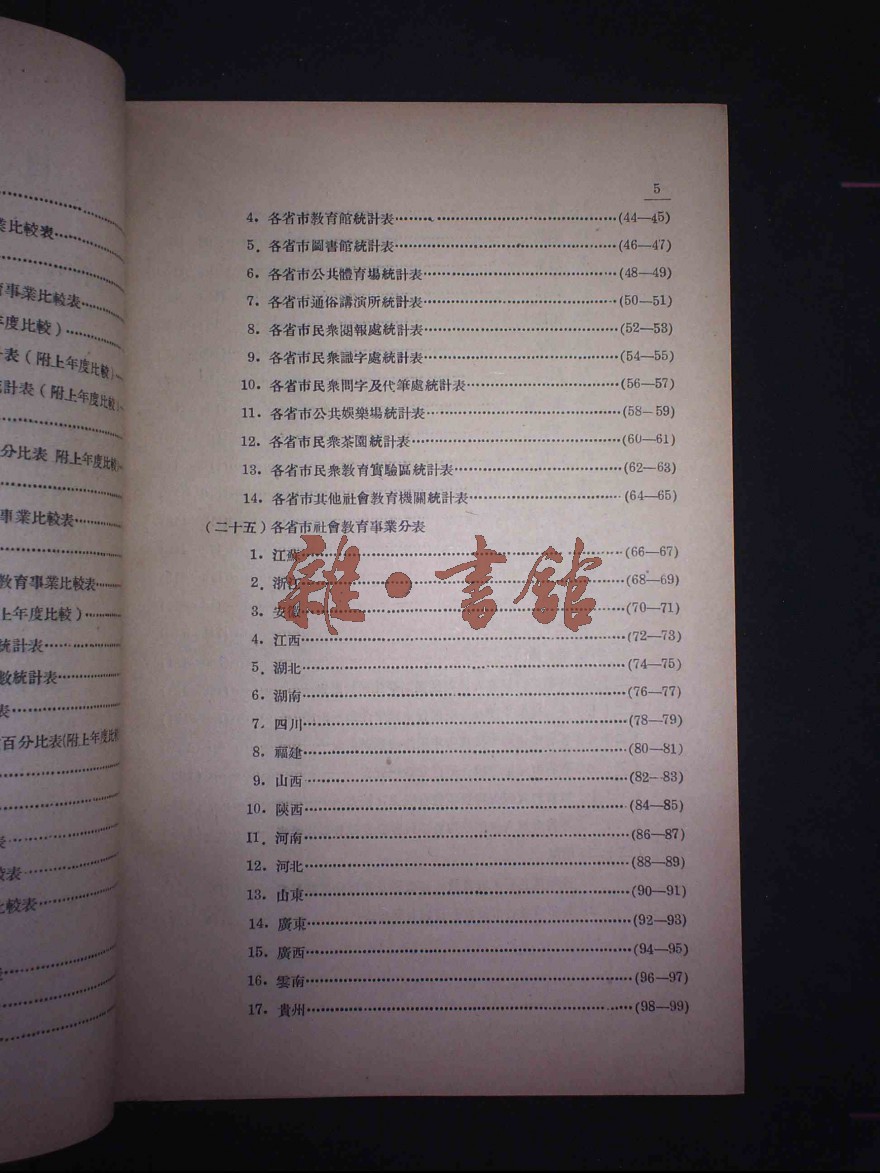 業比較表
育事業比較表
年度比較）
計表（附上年度比較）
統計表（附上年度比較）
分比表 附上年度比較
事業比較表
教育事業比較表
上年度比較）
統計表
數統計表
表
百分比表(附上年度比較
表
較表
比較表
5
4. 各省市教育館統計表 (44—45)
5. 各省市圖書館統計表 (46—47)
6. 各省市公共體育場統計表 (48—49)
7. 各省市通俗講演所統計表 (50—51)
8. 各省市民衆閱報處統計表 (52—53)
9. 各省市民衆識字處統計表 (54—55)
10. 各省市民衆問字及代筆處統計表 (56—57)
11. 各省市公共娛樂場統計表 (58—59)
12. 各省市民衆茶園統計表 (60—61)
13. 各省市民衆教育實驗區統計表 (62—63)
14. 各省市其他社會教育機關統計表 (64—65)
(二十五) 各省市社會教育事業分表
1. 江蘇 (66—67)
2. 浙江 (68—69)
3. 安徽 (70—71)
4. 江西 (72—73)
5. 湖北 (74—75)
6. 湖南 (76—77)
7. 四川 (78—79)
8. 福建 (80—81)
9. 山西 (82—83)
10. 陝西 (84—85)
11. 河南 (86—87)
12. 河北 (88—89)
13. 山東 (90—91)
14. 廣東 (92—93)
15. 廣西 (94—95)
16. 雲南 (96—97)
17. 貴州 (98—99)
雜·書館